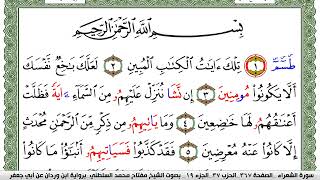 بِسْمِ اللَّهِ الرَّحْمَٰنِ الرَّحِيمِ
طسٓمٓ ١ تِلْكَ ءَايَٰتُ الْكِتَٰبِ الْمُبِينِ ٢ لَعَلَّكَ بَٰخِعٌ نَّفْسَكَ
أَلَّا يَكُونُوا مُومِنِينَ ٣ إِن نَّشَا نُنَزِّلْ عَلَيْهِمُ مِنَ السَّمَآءِ ءَايَةً فَظَلَّتْ
أَعْنَٰقُهُمُ لَهَا خَٰضِعِينَ ٤ وَمَا يَاتِيهِمُ مِن ذِكْرٍ مِنَ الرَّحْمَٰنِ مُحْدَثٍ
إِلَّا كَانُوا عَنْهُ مُعْرِضِينَ ٥ فَقَدْ كَذَّبُوا فَسَيَاتِيهِمُ أَنۢبَٰٓؤُا مَا كَانُوا
سورة الشعراء الصفحة ٣٦٧ الحزب ٣٧ الجزء ١٩ بصوت الشيخ مفتاح محمد السلطني برواية ابن وردان عن أبي جعفر